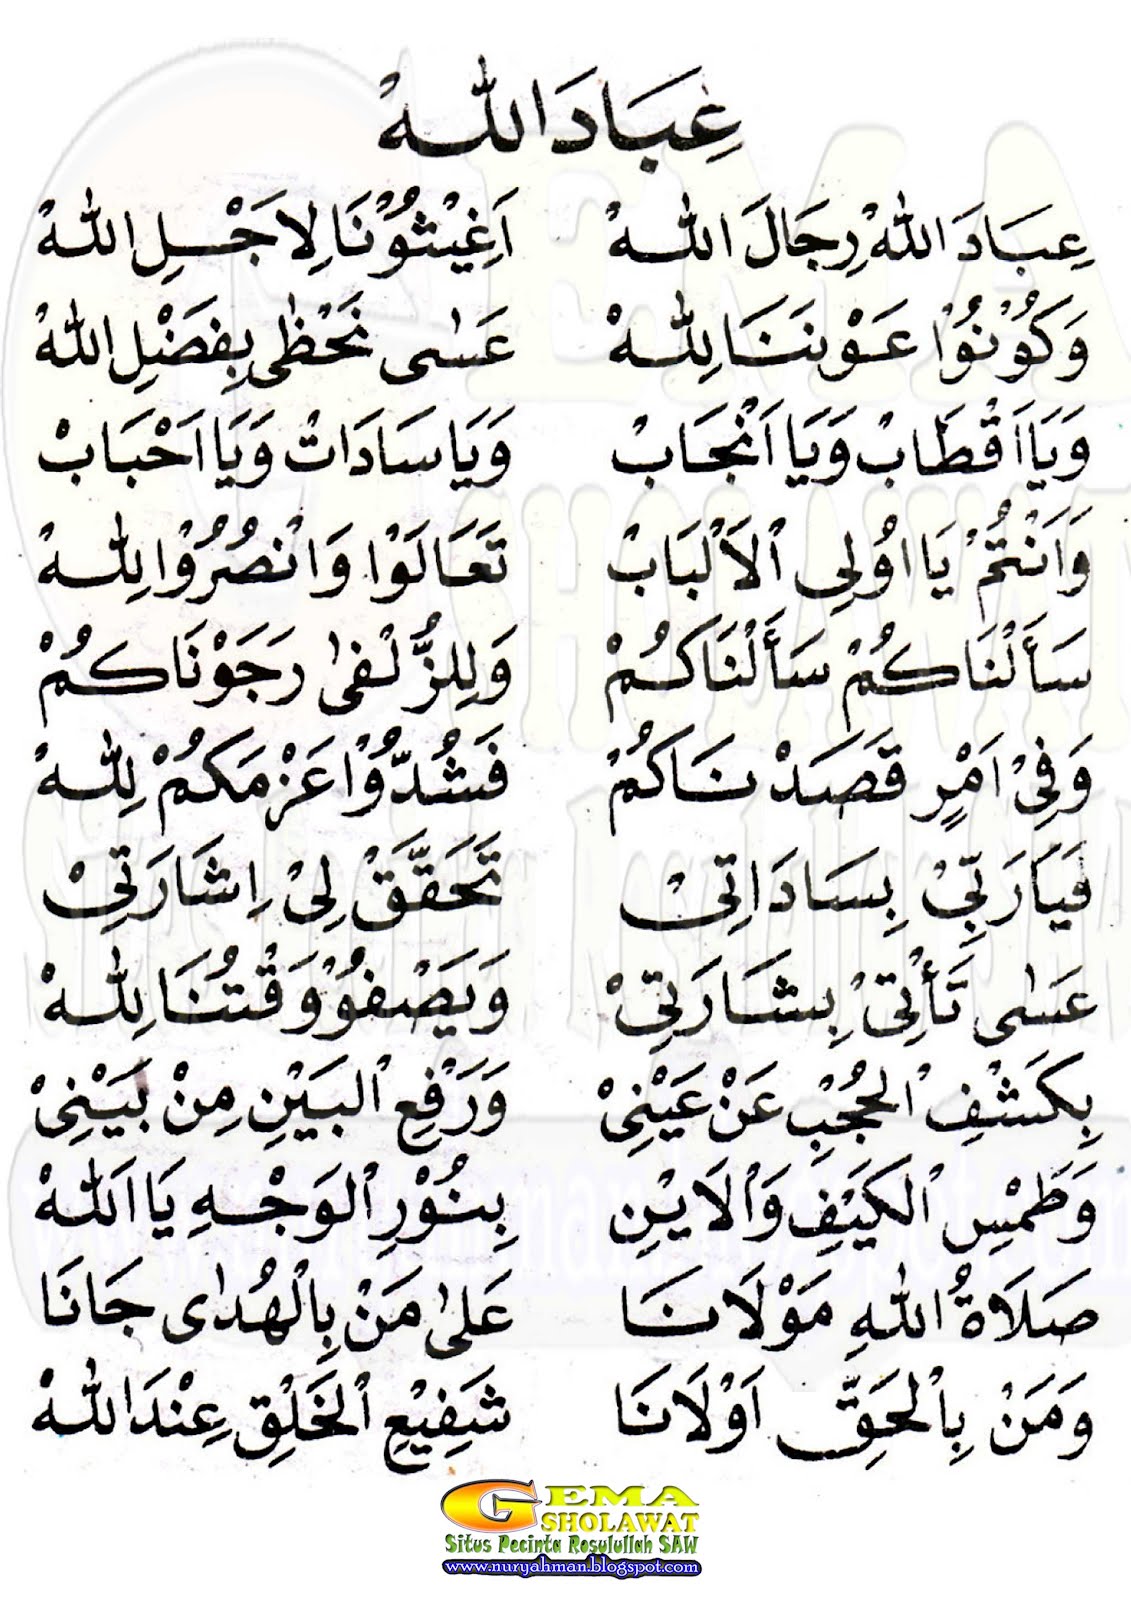 عِبَادَ اللهْ
عِبَادَ اللهْ رِجَالَ اللهْ اَغِيْثُوْنَا لِاَجْلِ اللهْ
وَكُوْنُوْا عَوْنَنَا لِلّٰهْ عَسٰى نَحْظٰى بِفَضْلِ اللهْ
وَيَا اَقْطَابْ وَيَا اَنْجَابْ وَيَا سَادَاتْ وَيَا اَحْبَابْ
وَاَنْتُمْ يَا اُولِى اْلاَلْبَابْ تَعَالَوْا وَانْصُرُوْا لِلّٰهْ
سَأَلْنَاكُمْ سَأَلْنَاكُمْ وَلِلزُّلْفٰى رَجَوْنَاكُمْ
وَفِيْ اَمْرٍ قَصَدْنَاكُمْ فَشُدُّوْا عَزْمَكُمْ لِلّٰهْ
فَيَارَبِّيْ بِسَادَاتِيْ تَحَقَّقْ لِيْ اِشَارَتِيْ
عَسٰى تَأْتِيْ بِشَارَتِيْ وَيَصْفُوْ وَقْتُنَا لِلّٰهْ
بِكَشْفِ اْلحُجْبِ عَنْ عَيْنِيْ وَرَفْعِ اْلبَيْنِ مِنْ بَيْنِيْ
وَطَمْسِ اْلكَيْفِ وَاْلاَيْنِ بِنُوْرِ اْلوَجْهِ يَا اَللهْ
صَلَاةُ اللهِ مَوْلَانَا عَلٰى مَنْ بِالْهُدٰى جَانَا
وَمَنْ بِاْلحَقِّ اَوْلَانَا شَفِيْعِ اْلخَلْقِ عِنْدَ اللهْ
GEMA
SHOLAWAT
Situs Pecinta Rosulullah SAW
www.nuryahman.blogspot.com